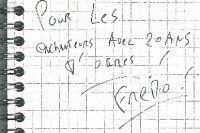 Pour les
enchanteurs avec 20 ans
d'
!
FREDO!